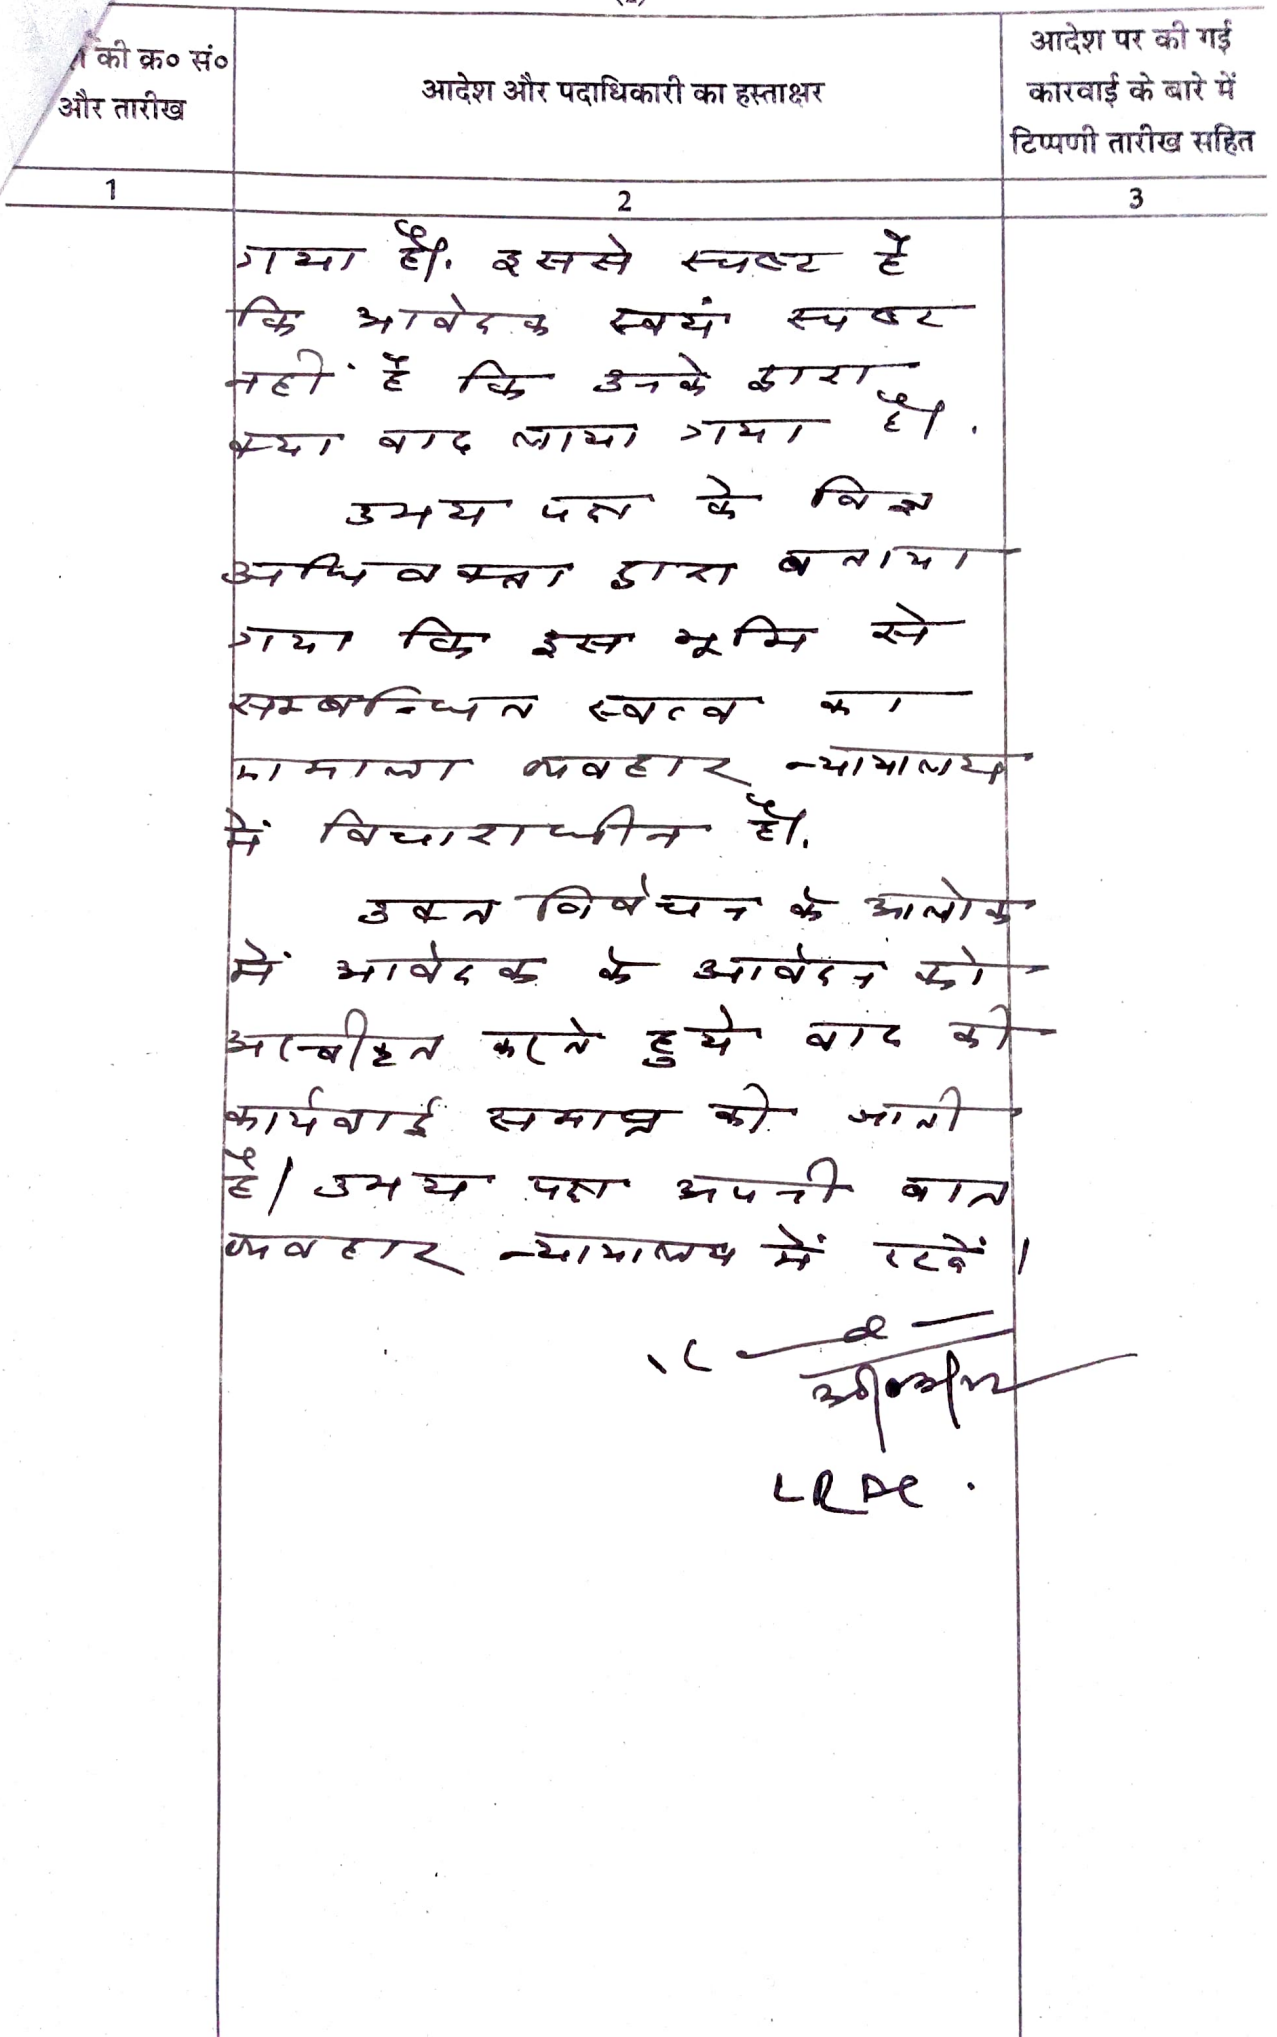 की क्र० सं०
और तारीख
आदेश और पदाधिकारी का हस्ताक्षर
आदेश पर की गई
कारवाई के बारे में
टिप्पणी तारीख सहित
1
2
3
गया है। इससे स्पष्ट है
कि आवेदक स्वयं स्पष्ट
नहीं है कि उनके द्वारा
क्या वाद लाया गया है।
उभय पक्ष के विज्ञ
अधिवक्ता द्वारा बताया
गया कि इस भूमि से
सम्बन्धित स्वत्व का
मामाला व्यवहार न्यायालय
में विचाराधीन है।
उक्त विवेचन के आलोक
में आवेदक के आवेदन को
अस्वीकृत करते हुये वाद की
कार्यवाई समाप्त की जाती
है। उभय पक्ष अपनी बात
व्यवहार न्यायालय में रखें।
LRDC